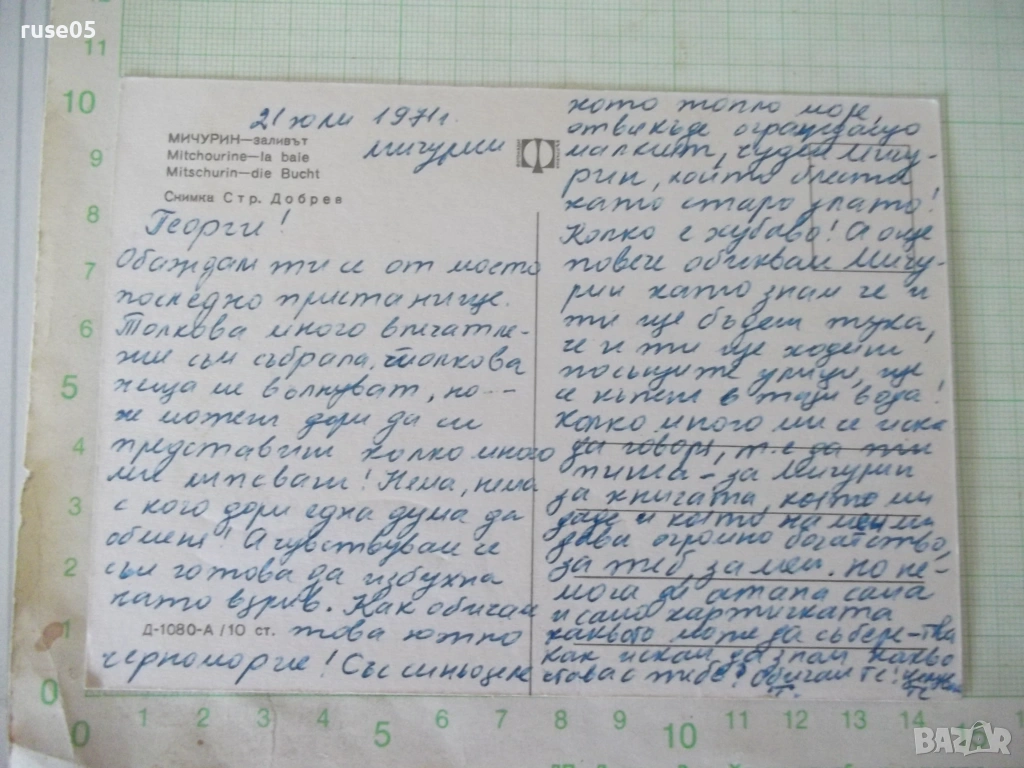 ruse05
21 юли 1971г.
Мичурин
МИЧУРИН—заливът
Mitchourine—la baie
Mitschurin—die Bucht
Снимка Стр. Добрев
Георги!
Обаждам ти се от моето
последно пристанище.
Толкова много впечатле-
ния съм събрала, толкова
неща ме вълнуват, но --
не можеш дори да си
представиш колко много
ми липсваш! Няма, няма
с кого дори една дума да
обменя! А чувствувам че
съм готова да избухна
като взрив. Как обичам
Д-1080-А/10 ст.
това южно
черноморие! Със синьоцве
като топло море,
отвсякъде ограждащо
малкият, чуден Мичу-
рин, който блести
като старо злато!
Колко е хубаво! А още
повече обиквам Мичу-
рин като знам че и
ти ще бъдеш тука,
че и ти ще ходиш
по същите улици, ще
се къпеш в тази вода!
Колко много ми се иска
да говоря, т.е да ти
пиша - за Мичурин
за книгата, която ми
даде и която на мен ми
дава огромно богатство,
за теб, за мен. но не-
мога да
и само картичката
каквото може да събере - това
как искам да знам какво
става с тебе! Обичам те!
0 1 2 3 4 5 6 7 8 9 10 11 12
0 1 2 3 4 5 6 7 8 9 10 11 12 13 14 15
BAZAR